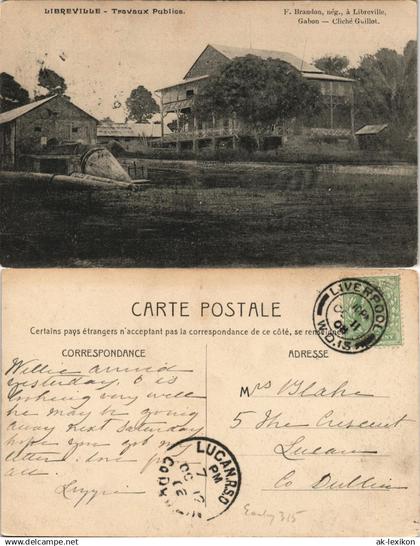 LIBREVILLE - Travaux Publics.
F. Brandon, nég., à Libreville,
Gabon - Cliché Guillot.
CARTE POSTALE
Certains pays étrangers n'acceptent pas la correspondance de ce côté, se renseigner
CORRESPONDANCE
ADRESSE
Willie arrived
yesterday. & is
looking very well
he may be going
away next Saturday
hope you got my
letter. love for
all.
Lizzie
Mrs Blake
5 The Crescent
Lucan
Co Dublin
LIVERPOOL
W.D.13
11
LUCAN.R.S.O
7 PM
OC 12
Early 315
www.akpool.de